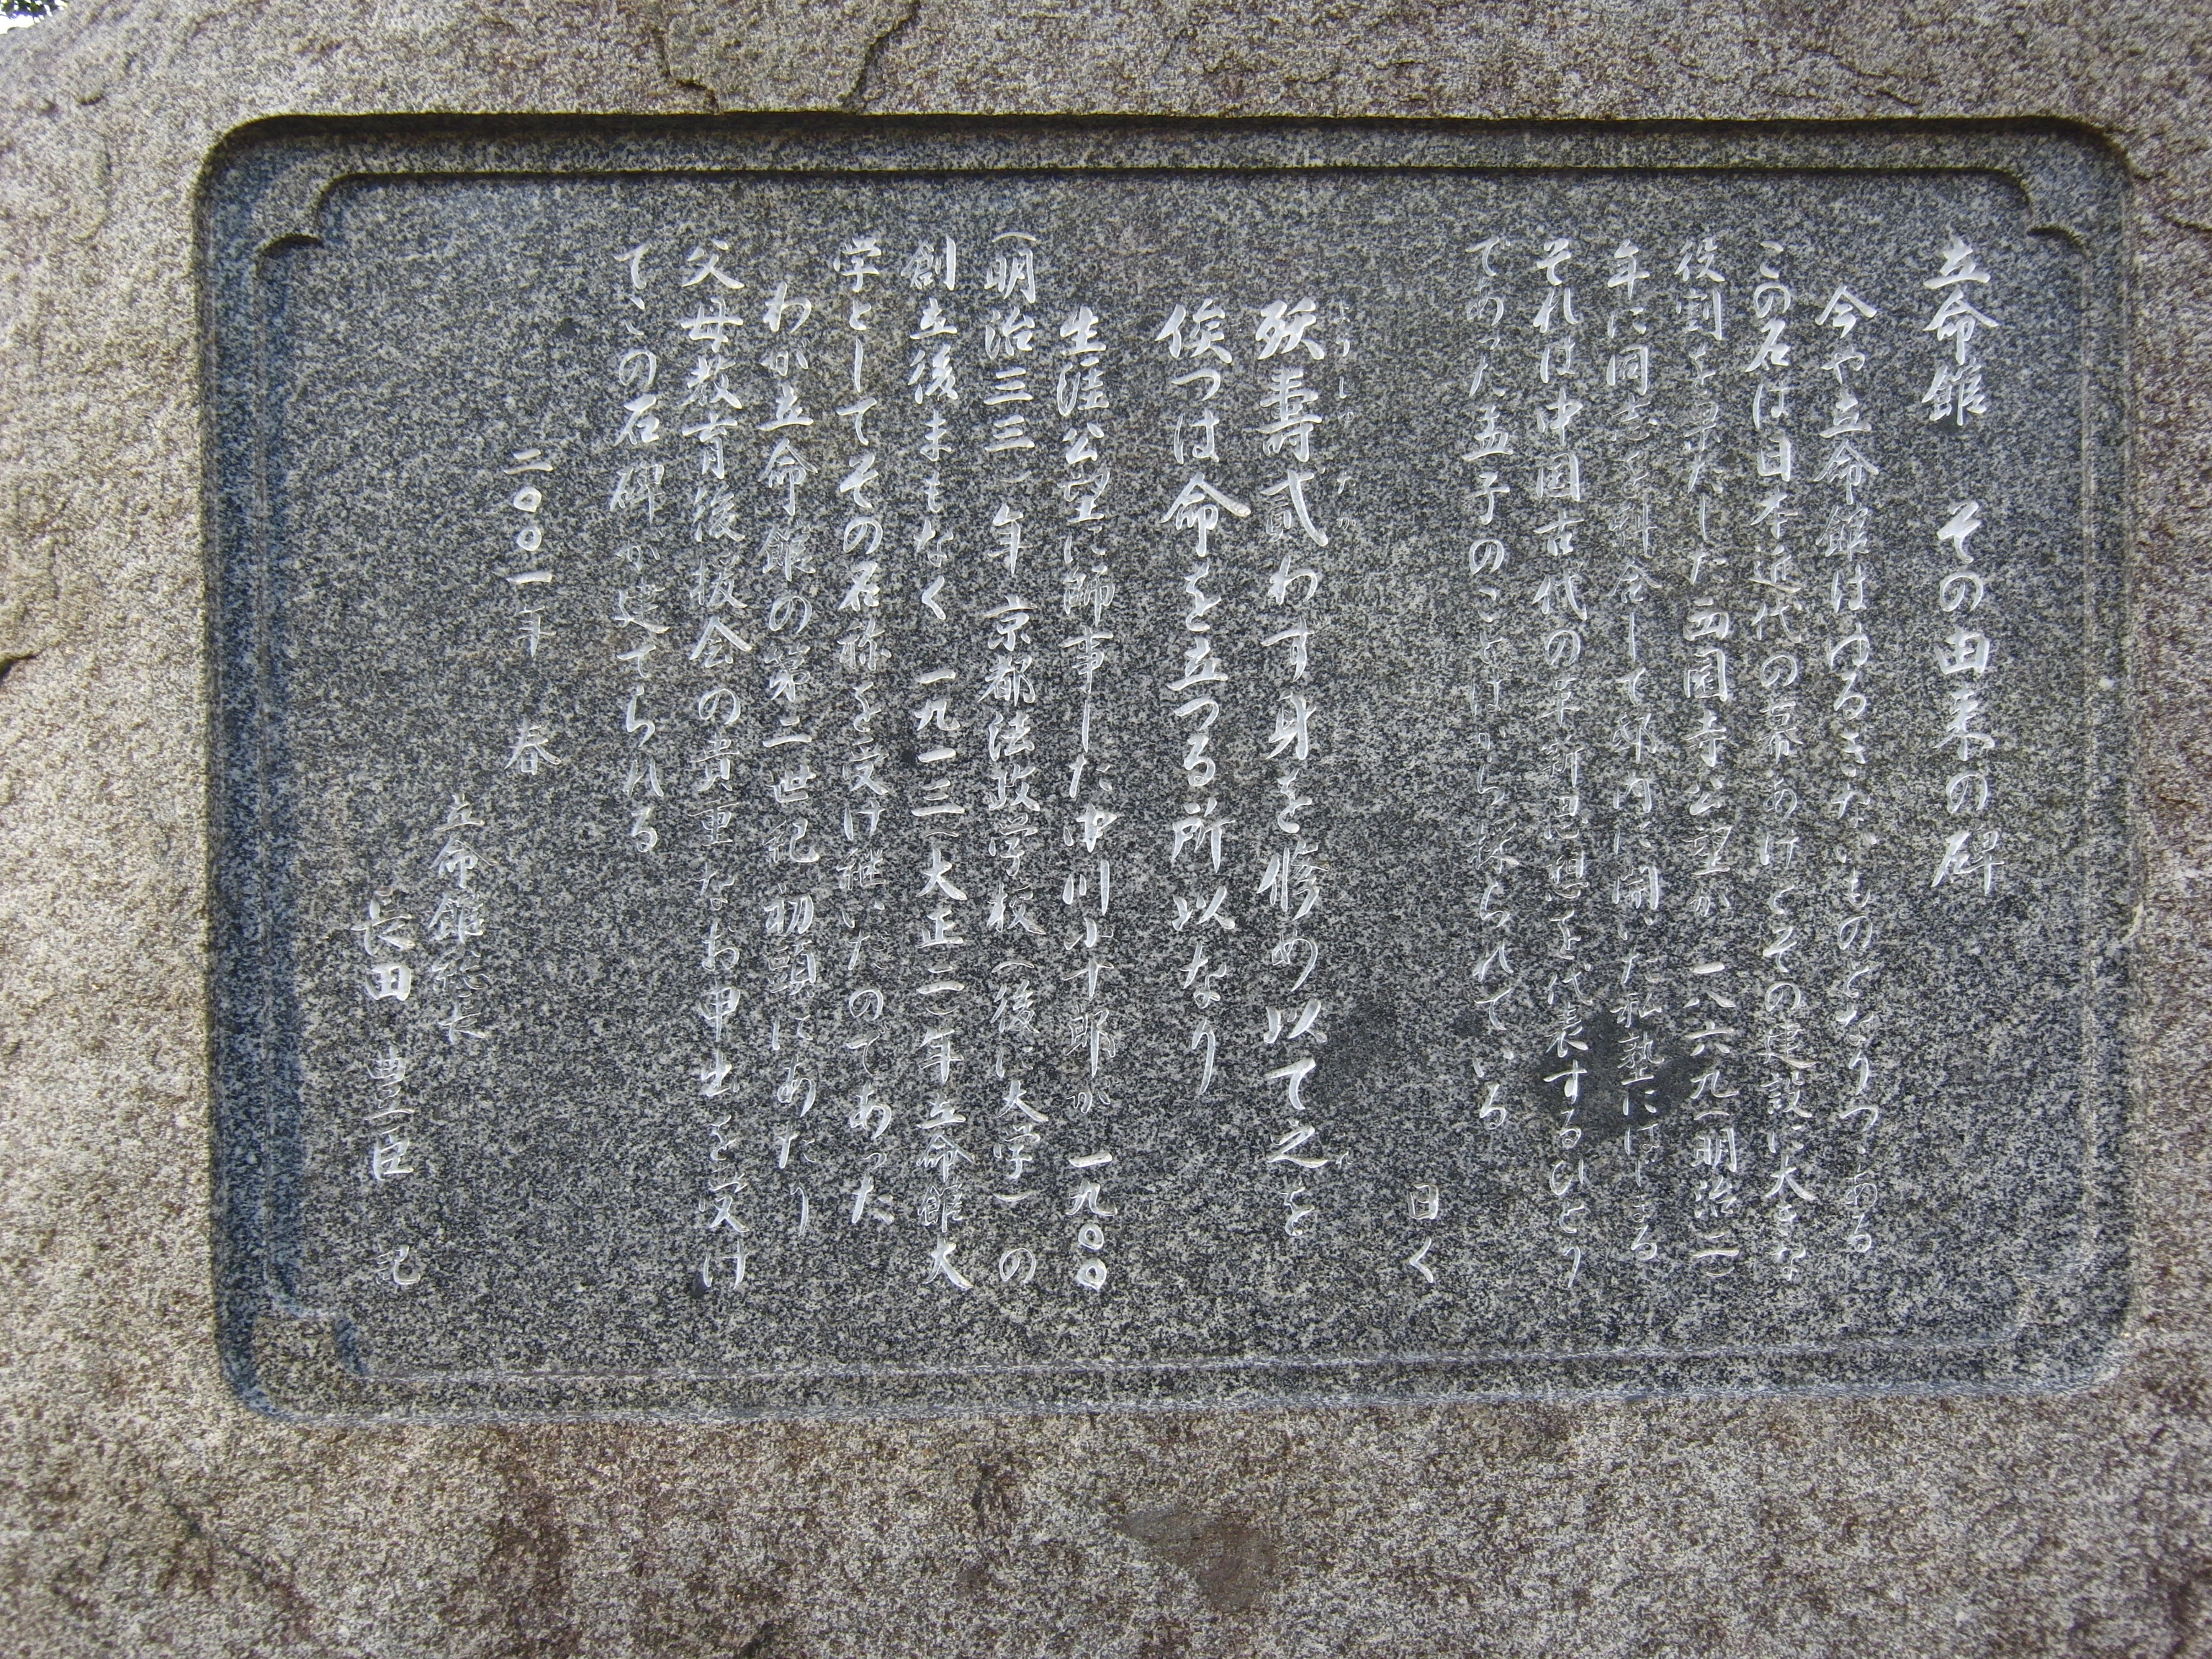 立命館 その由来の碑
今や立命館はゆるぎないものとなりつゝある
この名は日本近代の幕あけとその建設に大きな
役割を果たした西園寺公望が 一八六九(明治二)
年に同志を糾合して邸内に開いた私塾にはじまる
それは中国古代の革新思想を代表するひとり
であった孟子のことばから採られている
曰く
ようじゅ たが
殀壽貳わす身を修め以て之を
俟つは命を立つる所以なり
生涯公望に師事した中川小十郎が 一九〇〇
(明治三三)年 京都法政学校(後に大学)の
創立後まもなく 一九一三(大正二)年立命館大
学としてその名称を受け継いだのであった
わが立命館の第二世紀初頭にあたり
父母教育後援会の貴重なお申出を受け
てこの石碑が建てられる
二〇〇一年 春
立命館総長
長田 豊臣 記